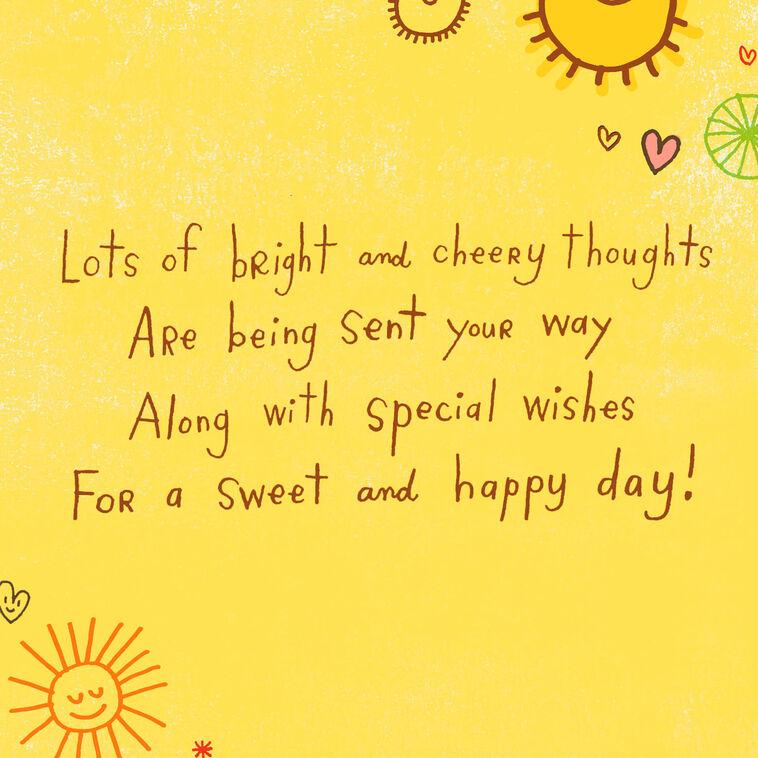 Lots of bright and cheery thoughts
Are being sent your way
Along with special wishes
For a sweet and happy day!